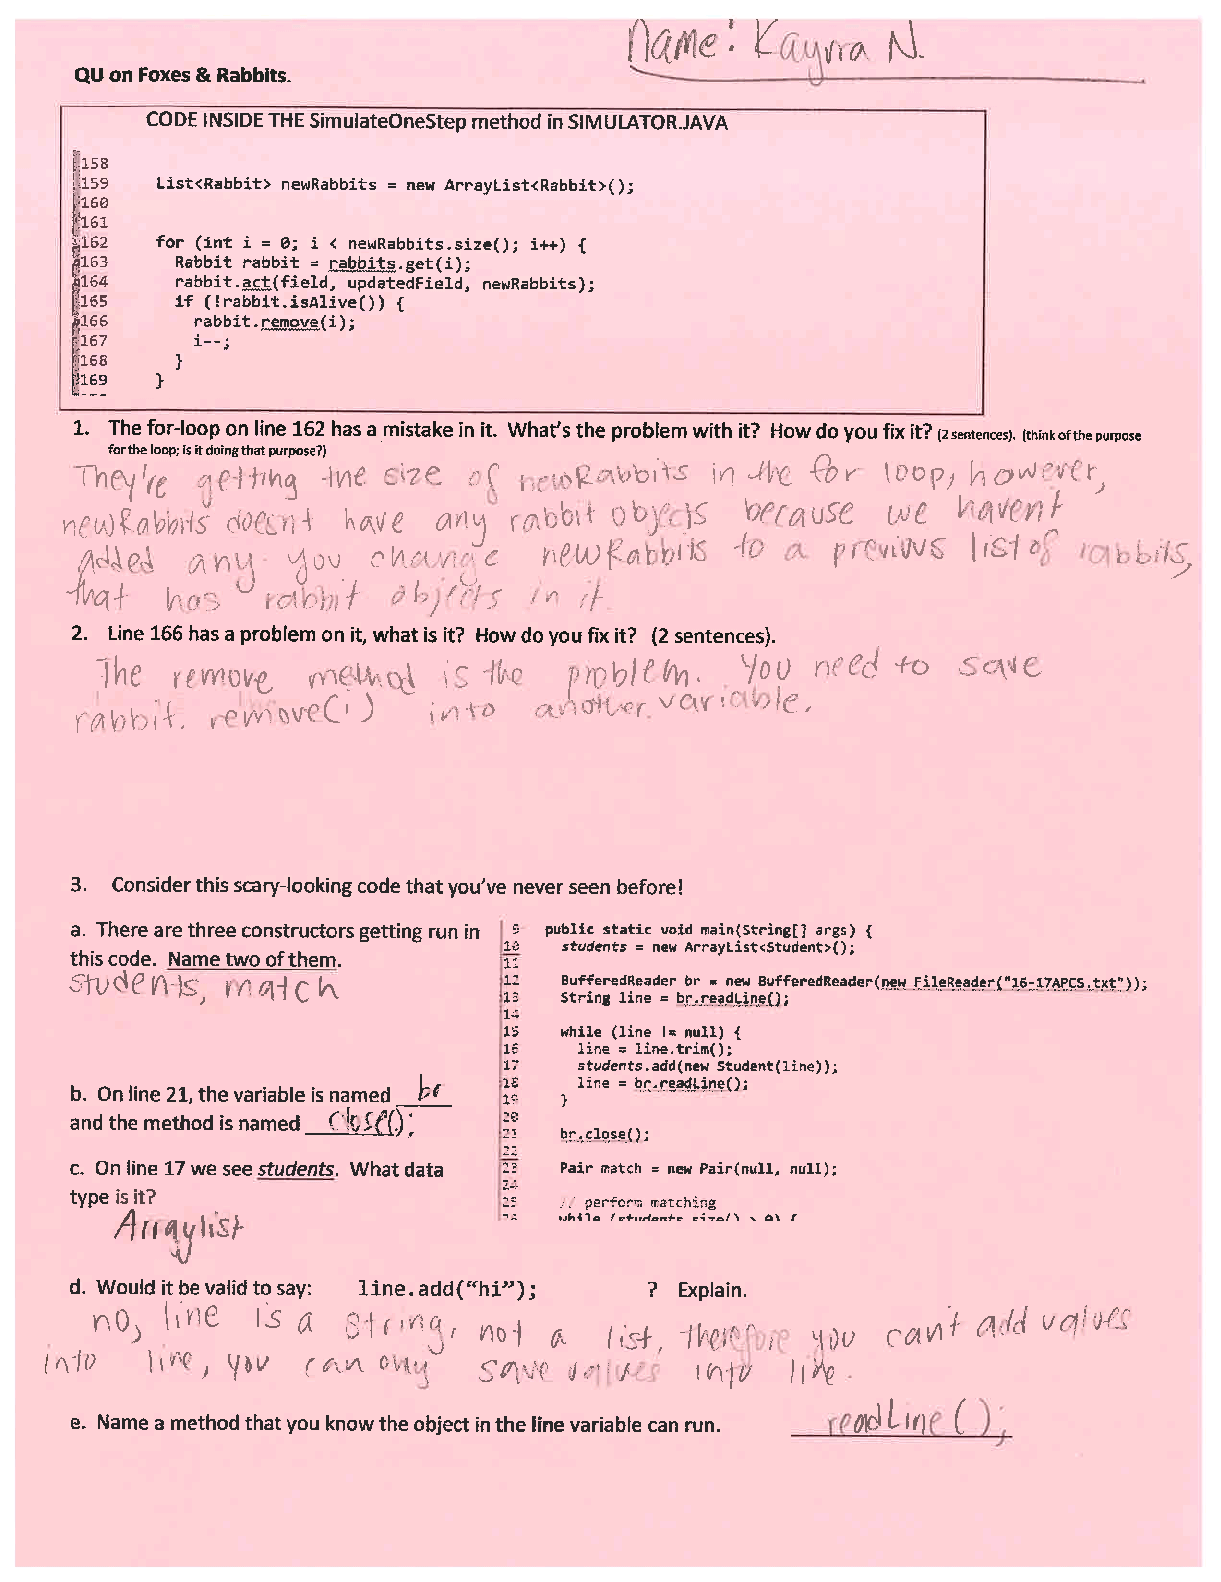 name: Kayrra N.
QU on Foxes & Rabbits.
CODE INSIDE THE SimulateOneStep method in SIMULATOR.JAVA
158
159 List<Rabbit> newRabbits = new ArrayList<Rabbit>();
160
161
162 for (int i = 0; i < newRabbits.size(); i++) {
163 Rabbit rabbit = rabbits.get(i);
164 rabbit.act(field, updatedField, newRabbits);
165 if (!rabbit.isAlive()) {
166 rabbit.remove(i);
167 i--;
168 }
169 }
1. The for-loop on line 162 has a mistake in it. What's the problem with it? How do you fix it? (2 sentences). (think of the purpose
for the loop; is it doing that purpose?)
They're getting the size of newRabbits in the for loop, however,
newRabbits doesn't have any rabbit objects because we havent
added any. you change newRabbits to a previous list of rabbits,
that has rabbit objects in it.
2. Line 166 has a problem on it, what is it? How do you fix it? (2 sentences).
The remove method is the problem. You need to save
rabbit.remove(i) into another variable.
3. Consider this scary-looking code that you've never seen before!
a. There are three constructors getting run in
this code. Name two of them.
students, match
b. On line 21, the variable is named br
and the method is named close();
c. On line 17 we see students. What data
type is it?
Arraylist
9 public static void main(String[] args) {
10 students = new ArrayList<Student>();
11
12 BufferedReader br = new BufferedReader(new FileReader("16-17APCS.txt"));
13 String line = br.readLine();
14
15 while (line != null) {
16 line = line.trim();
17 students.add(new Student(line));
18 line = br.readLine();
19 }
20
21 br.close();
22
23 Pair match = new Pair(null, null);
24
25 // perform matching
26 while (students.size() > 0) {
d. Would it be valid to say: line.add("hi"); ? Explain.
no, line is a string, not a list, therefore you can't add values
into line, you can only save values into line.
e. Name a method that you know the object in the line variable can run. readLine();